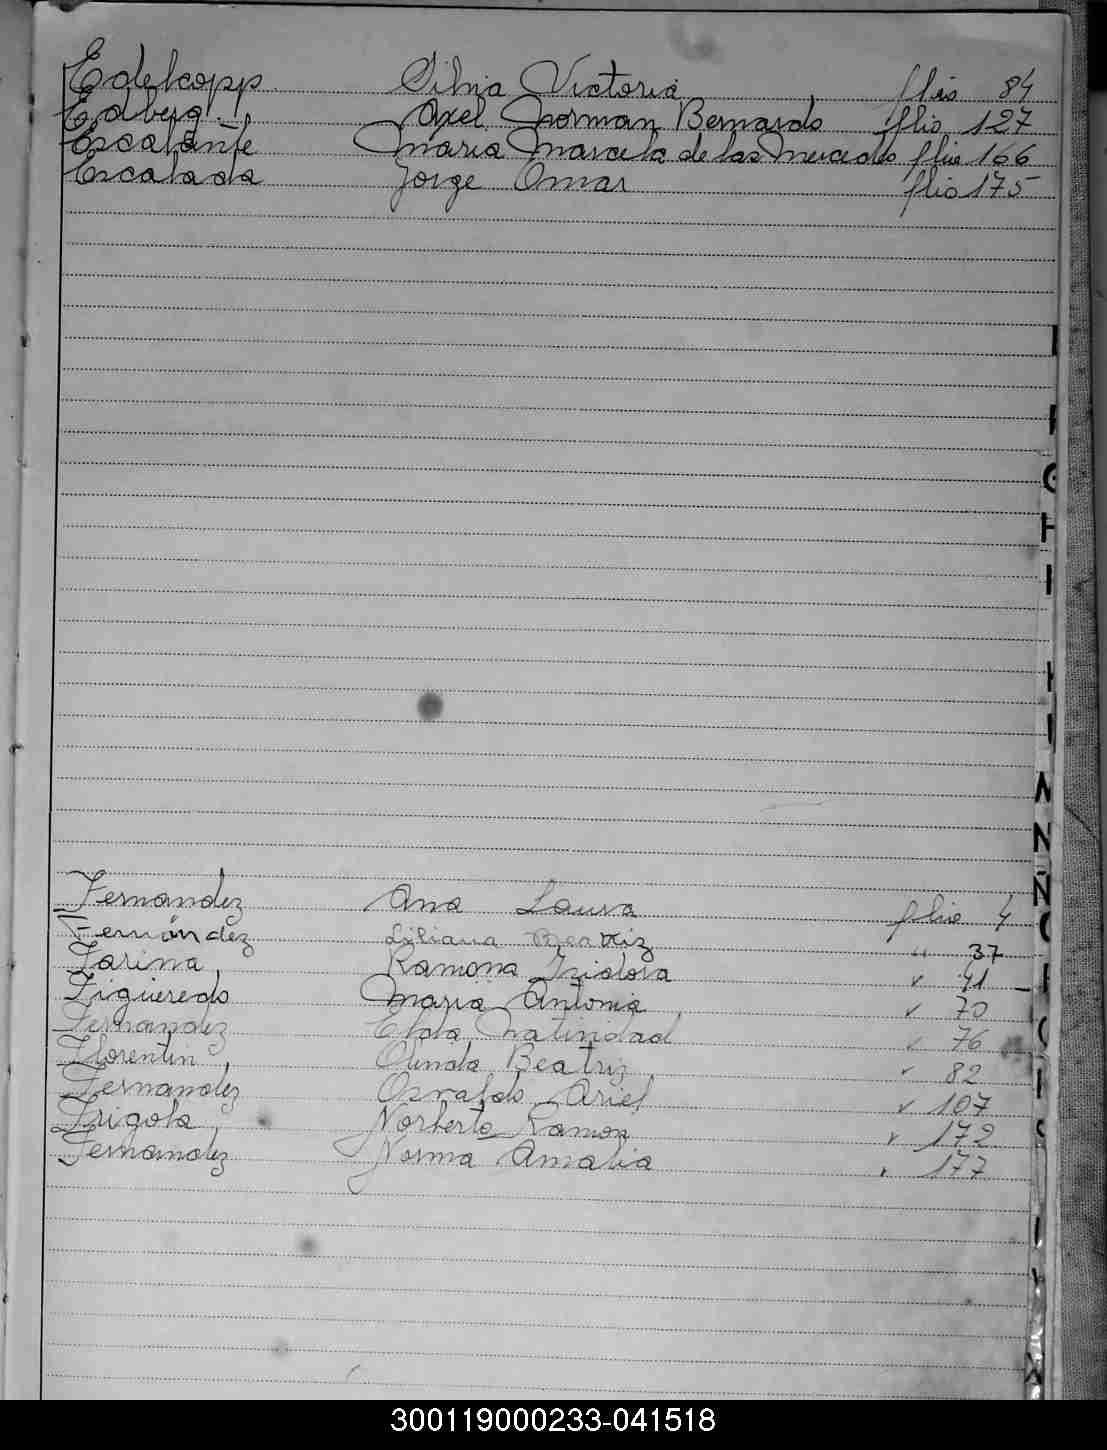 Edelkopp Silvia Victoria flio 84
Edberg Axel Norman Bernardo flio 127
Escalante Maria Marcela de las Mercedes flio 166
Escalada Jorge Omar flio 175
Fernandez Ana Laura flio 4
Fernández Liliana Beatriz " 37
Farina Ramona Isidora " 41
Figueredo Maria Antonia " 70
Fernandez Elda Natividad " 76
Florentin Olinda Beatriz " 82
Fernandez Osvaldo Ariel " 107
Frigola Norberto Ramon " 172
Fernandez Norma Amalia " 177
G
H
I
M
N
Ñ
X
300119000233-041518